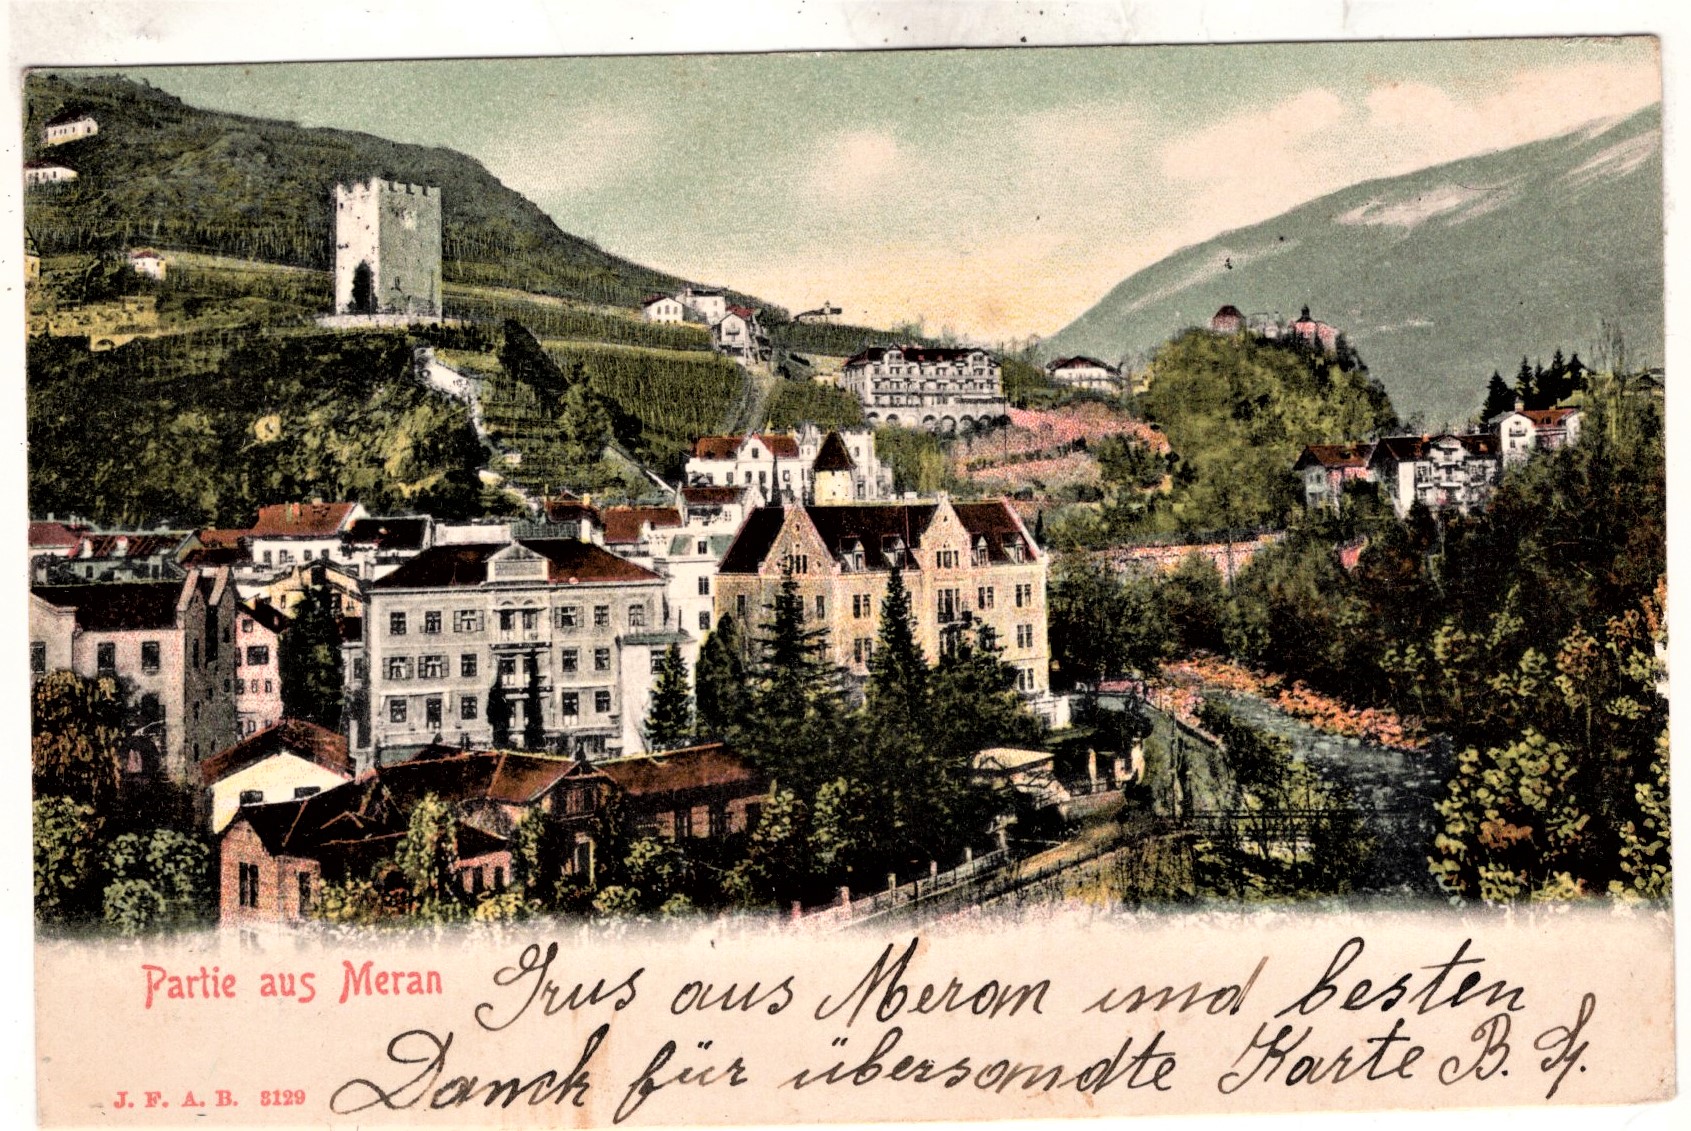 Partie aus Meran
Grus aus Meran und besten
Danck für übersandte Karte B. H.
J. F. A. B. 3129